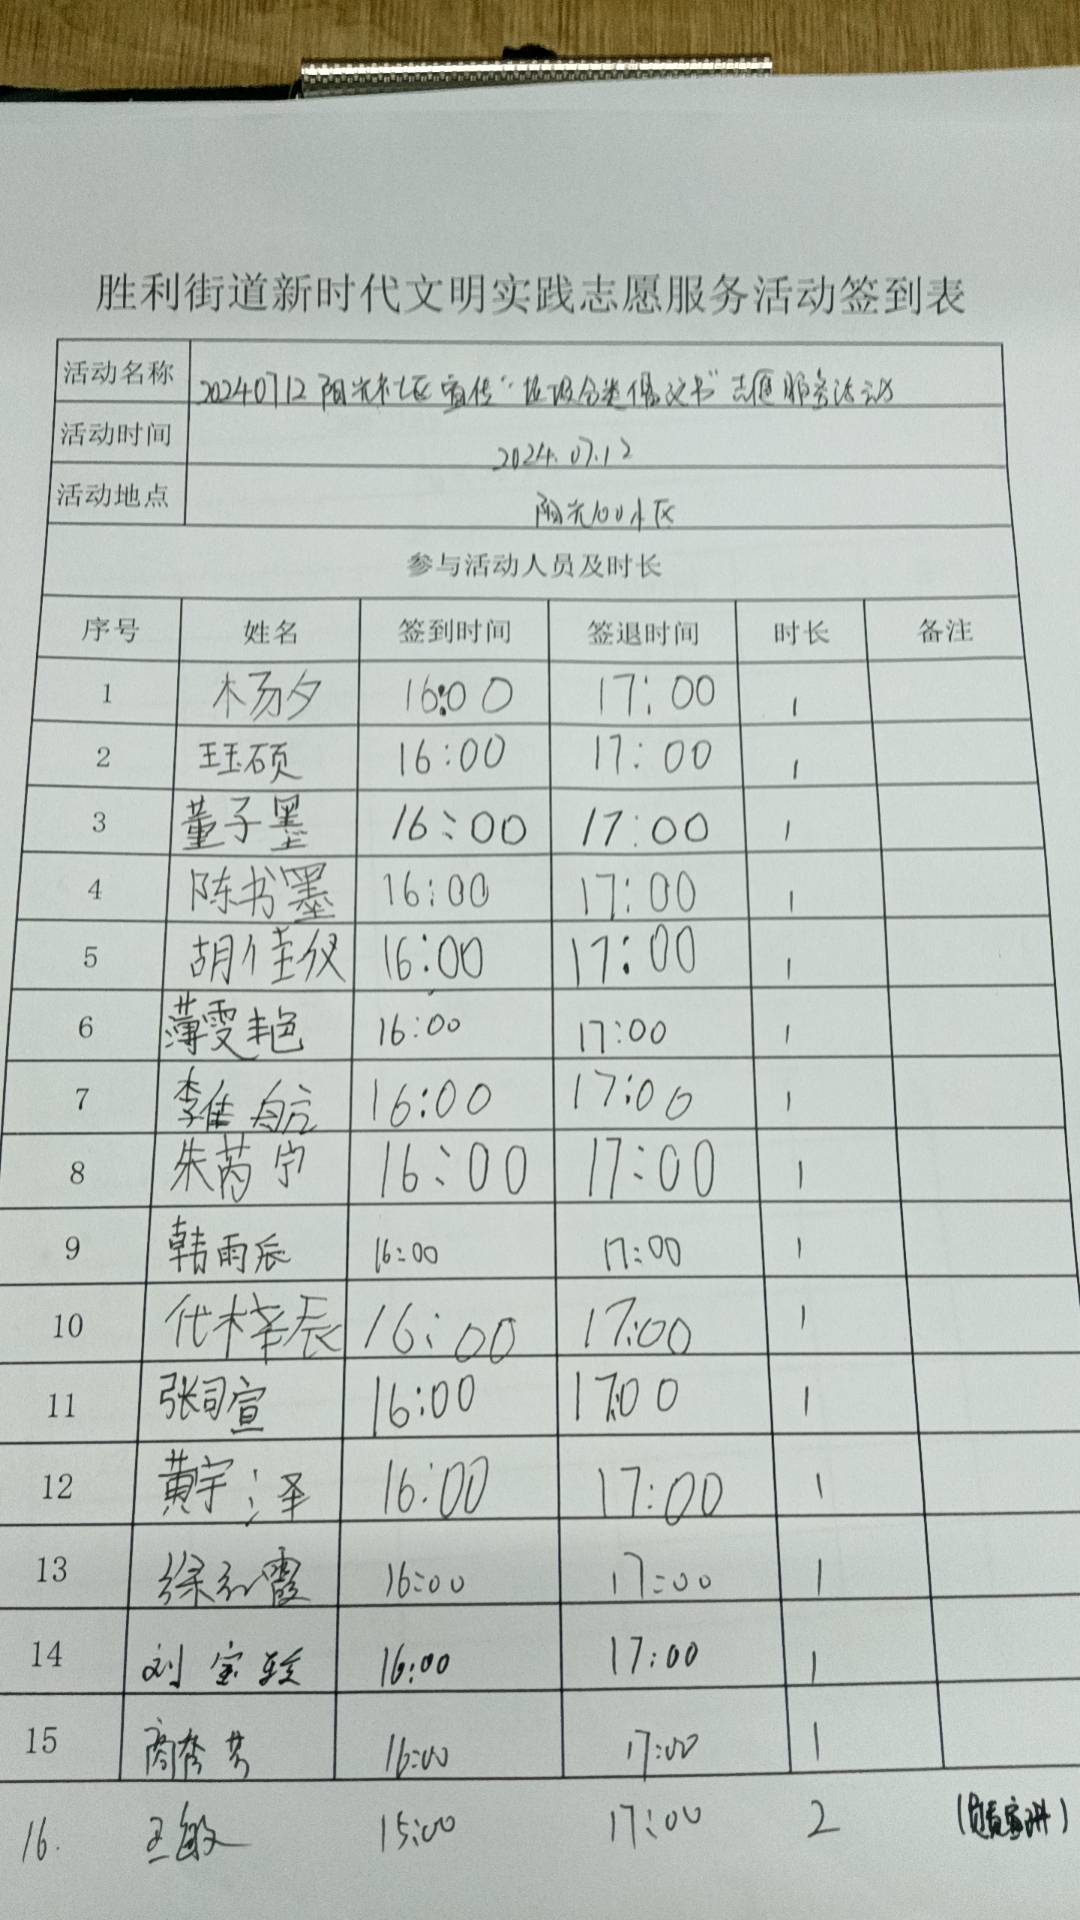 胜利街道新时代文明实践志愿服务活动签到表
活动名称 20240712阳光社区宣传“垃圾分类倡议书”志愿服务活动
活动时间 2024.07.12
活动地点 阳光100小区
参与活动人员及时长
序号 姓名 签到时间 签退时间 时长 备注
1 杨夕 16:00 17:00 1
2 王玉硕 16:00 17:00 1
3 董子墨 16:00 17:00 1
4 陈书墨 16:00 17:00 1
5 胡佳仪 16:00 17:00 1
6 薄雯艳 16:00 17:00 1
7 李佳航 16:00 17:00 1
8 朱芮宁 16:00 17:00 1
9 韩雨辰 16:00 17:00 1
10 代梓辰 16:00 17:00 1
11 张司宣 16:00 17:00 1
12 黄宇泽 16:00 17:00 1
13 徐红霞 16:00 17:00 1
14 刘宝 16:00 17:00 1
15 商秀芳 16:00 17:00 1
16. 王敏 15:00 17:00 2 (负责宣讲)